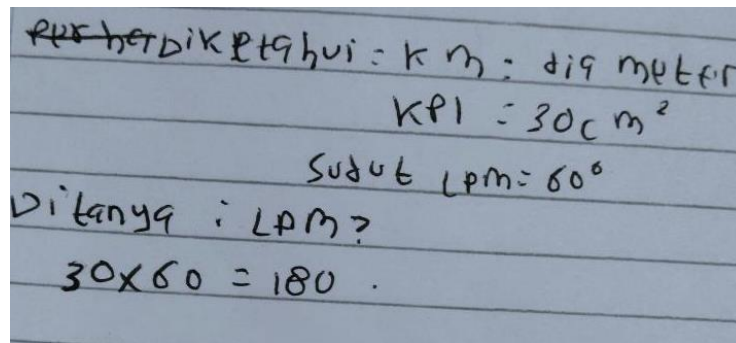 Diketahui = KM = diameter
KPl = 30cm²
Sudut LPM = 60°
Ditanya : LPM?
30x60 = 180 .